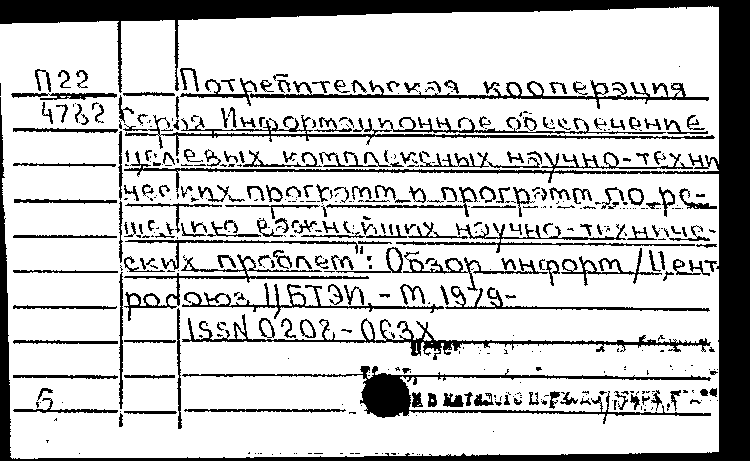 П22 Потребительская кооперация
4782 Серия „Информационное обеспечение
целевых комплексных научно-техни
ческих программ и программ по ре-
шению важнейших научно-техниче-
ских проблем": Обзор. информ / Цент
росоюз, ЦБТЭИ, - М, 1979-
ISSN 0202-063X
Б
в каталоге